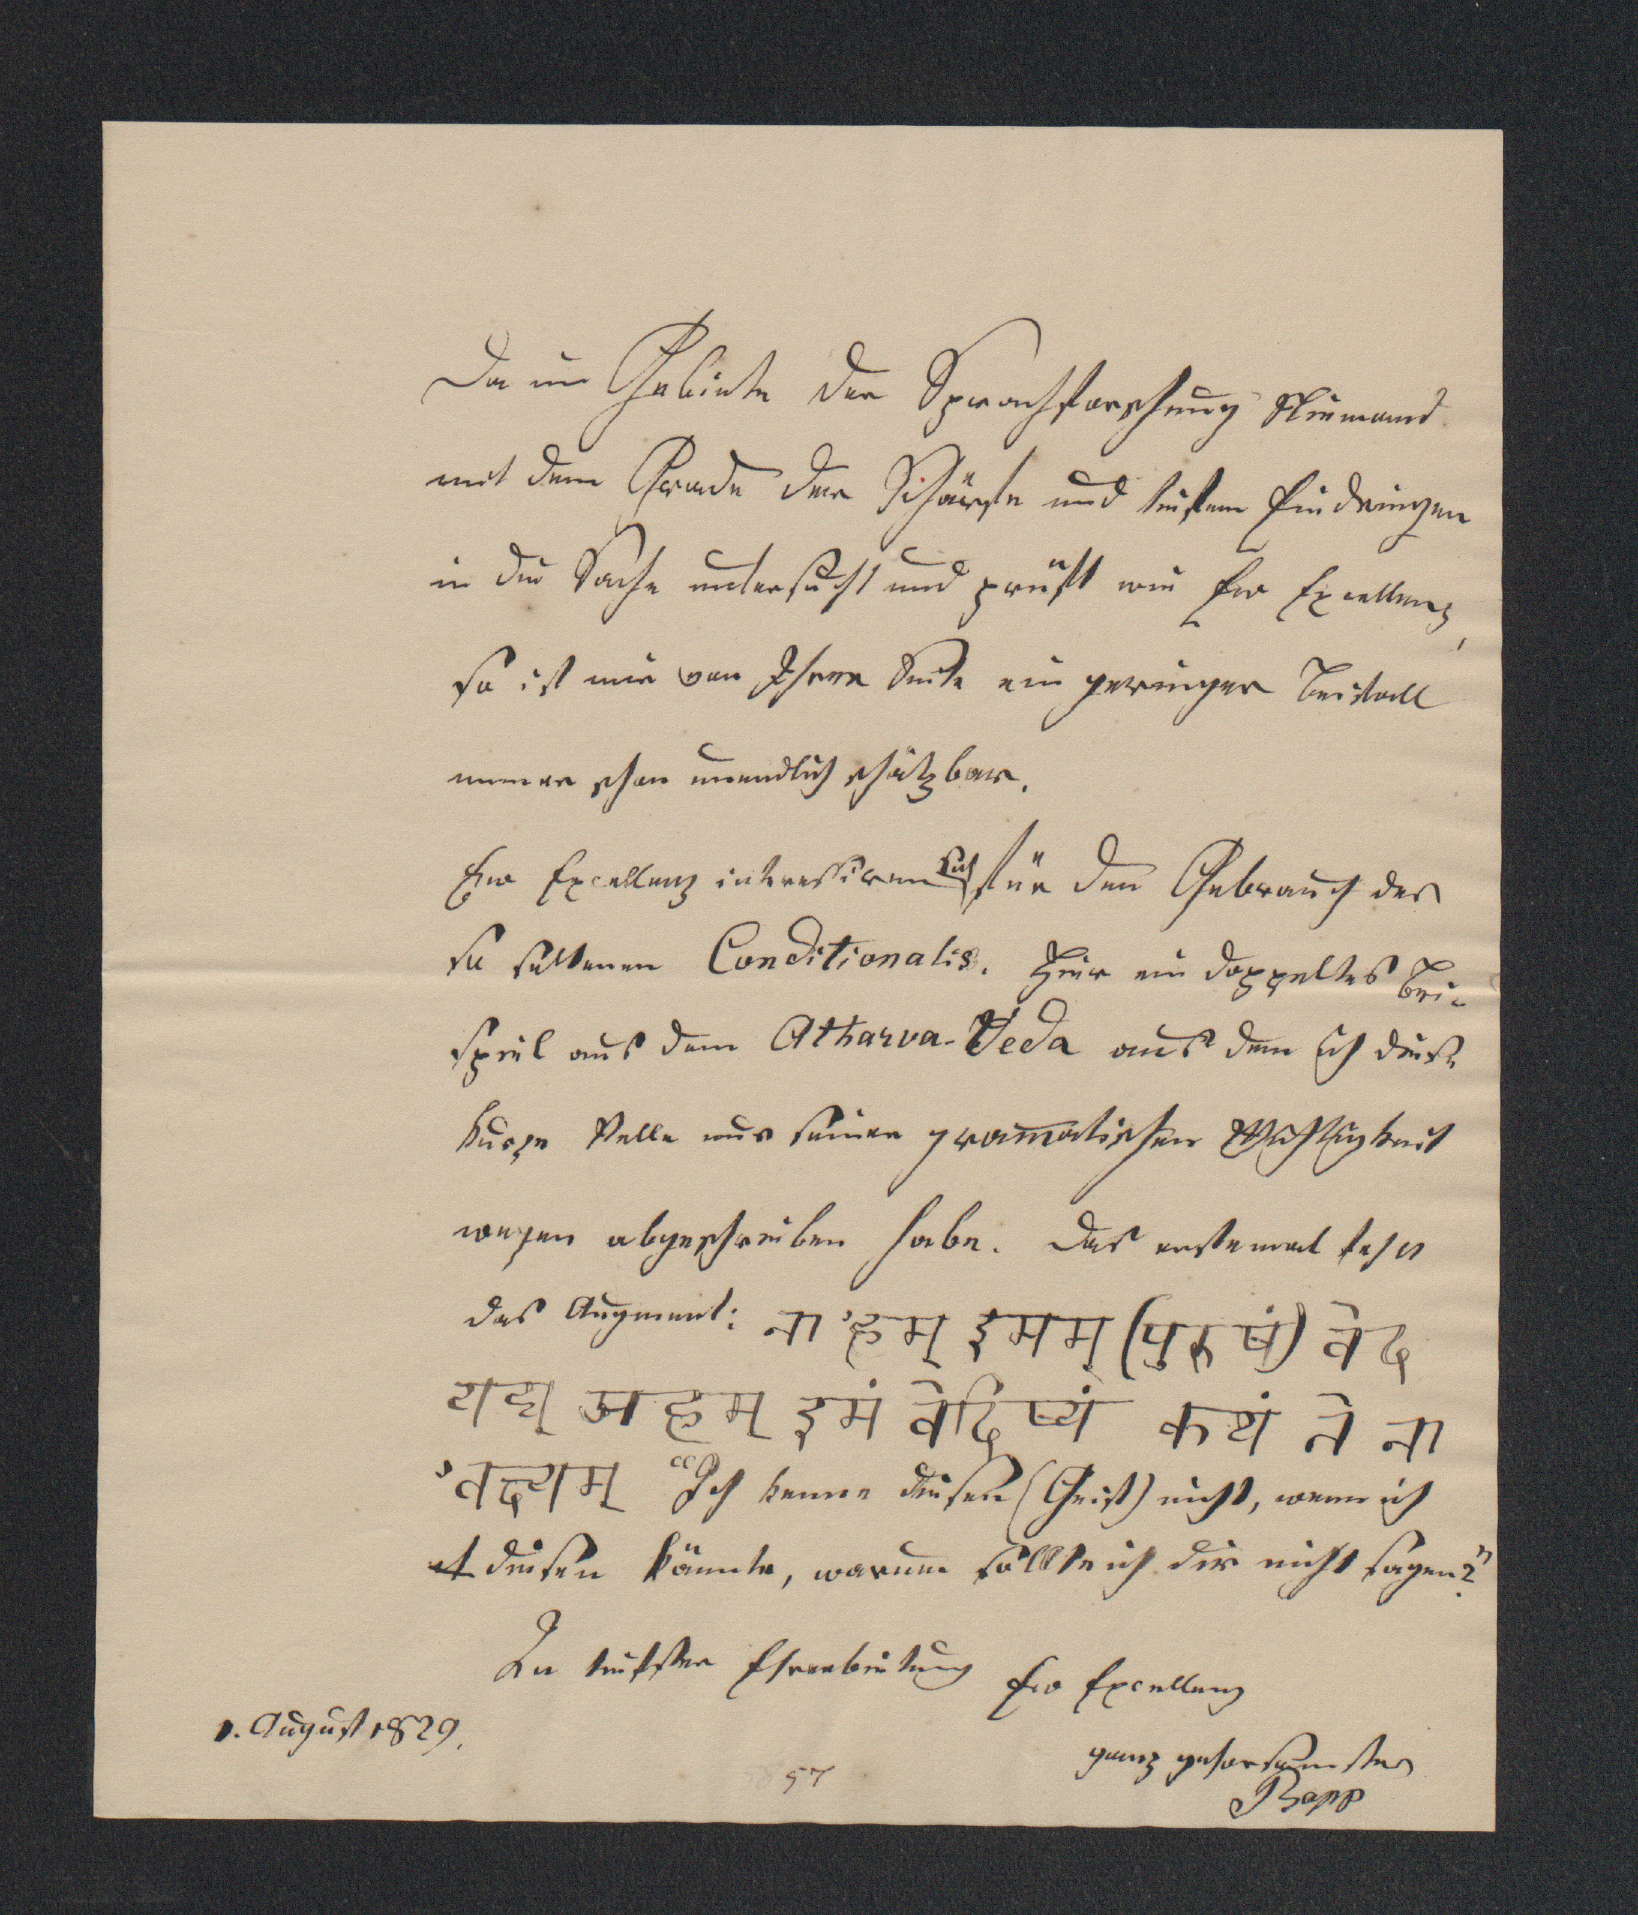 Da im Gebiete der Sprachforschung Niemand
mit dem Grade der Schärfe und tiefem Eindringen
in die Sache untersucht und prüft wie Ew Excellenz,
so ist mir von Ihrer Seite ein geringer Beifall
immer schon unendlich schätzbar.
Ew Excellenz interessiren sich für den Gebrauch des
so seltenen Conditionalis. Hier ein doppeltes Bei-
spiel aus dem Atharva-Veda aus dem ich diese
kurze Stelle nur seiner gram̄atischen Wichtigkeit
wegen abgeschrieben habe. Das erstemal fehlt
das Augment: ना 'हम् इमम् (पुरुषं) वेद
यद्य् अहम् इमं वेदिष्यं कथं ते ना
'वक्ष्यम् “Ich kenne diesen (Geist) nicht, wenn ich
diesen kännte, warum sollte ich dir nicht sagen?”
In tiefster Ehrerbietung Ew Excellenz
1. August 1829.
ganz gehorsamster
Bopp
57